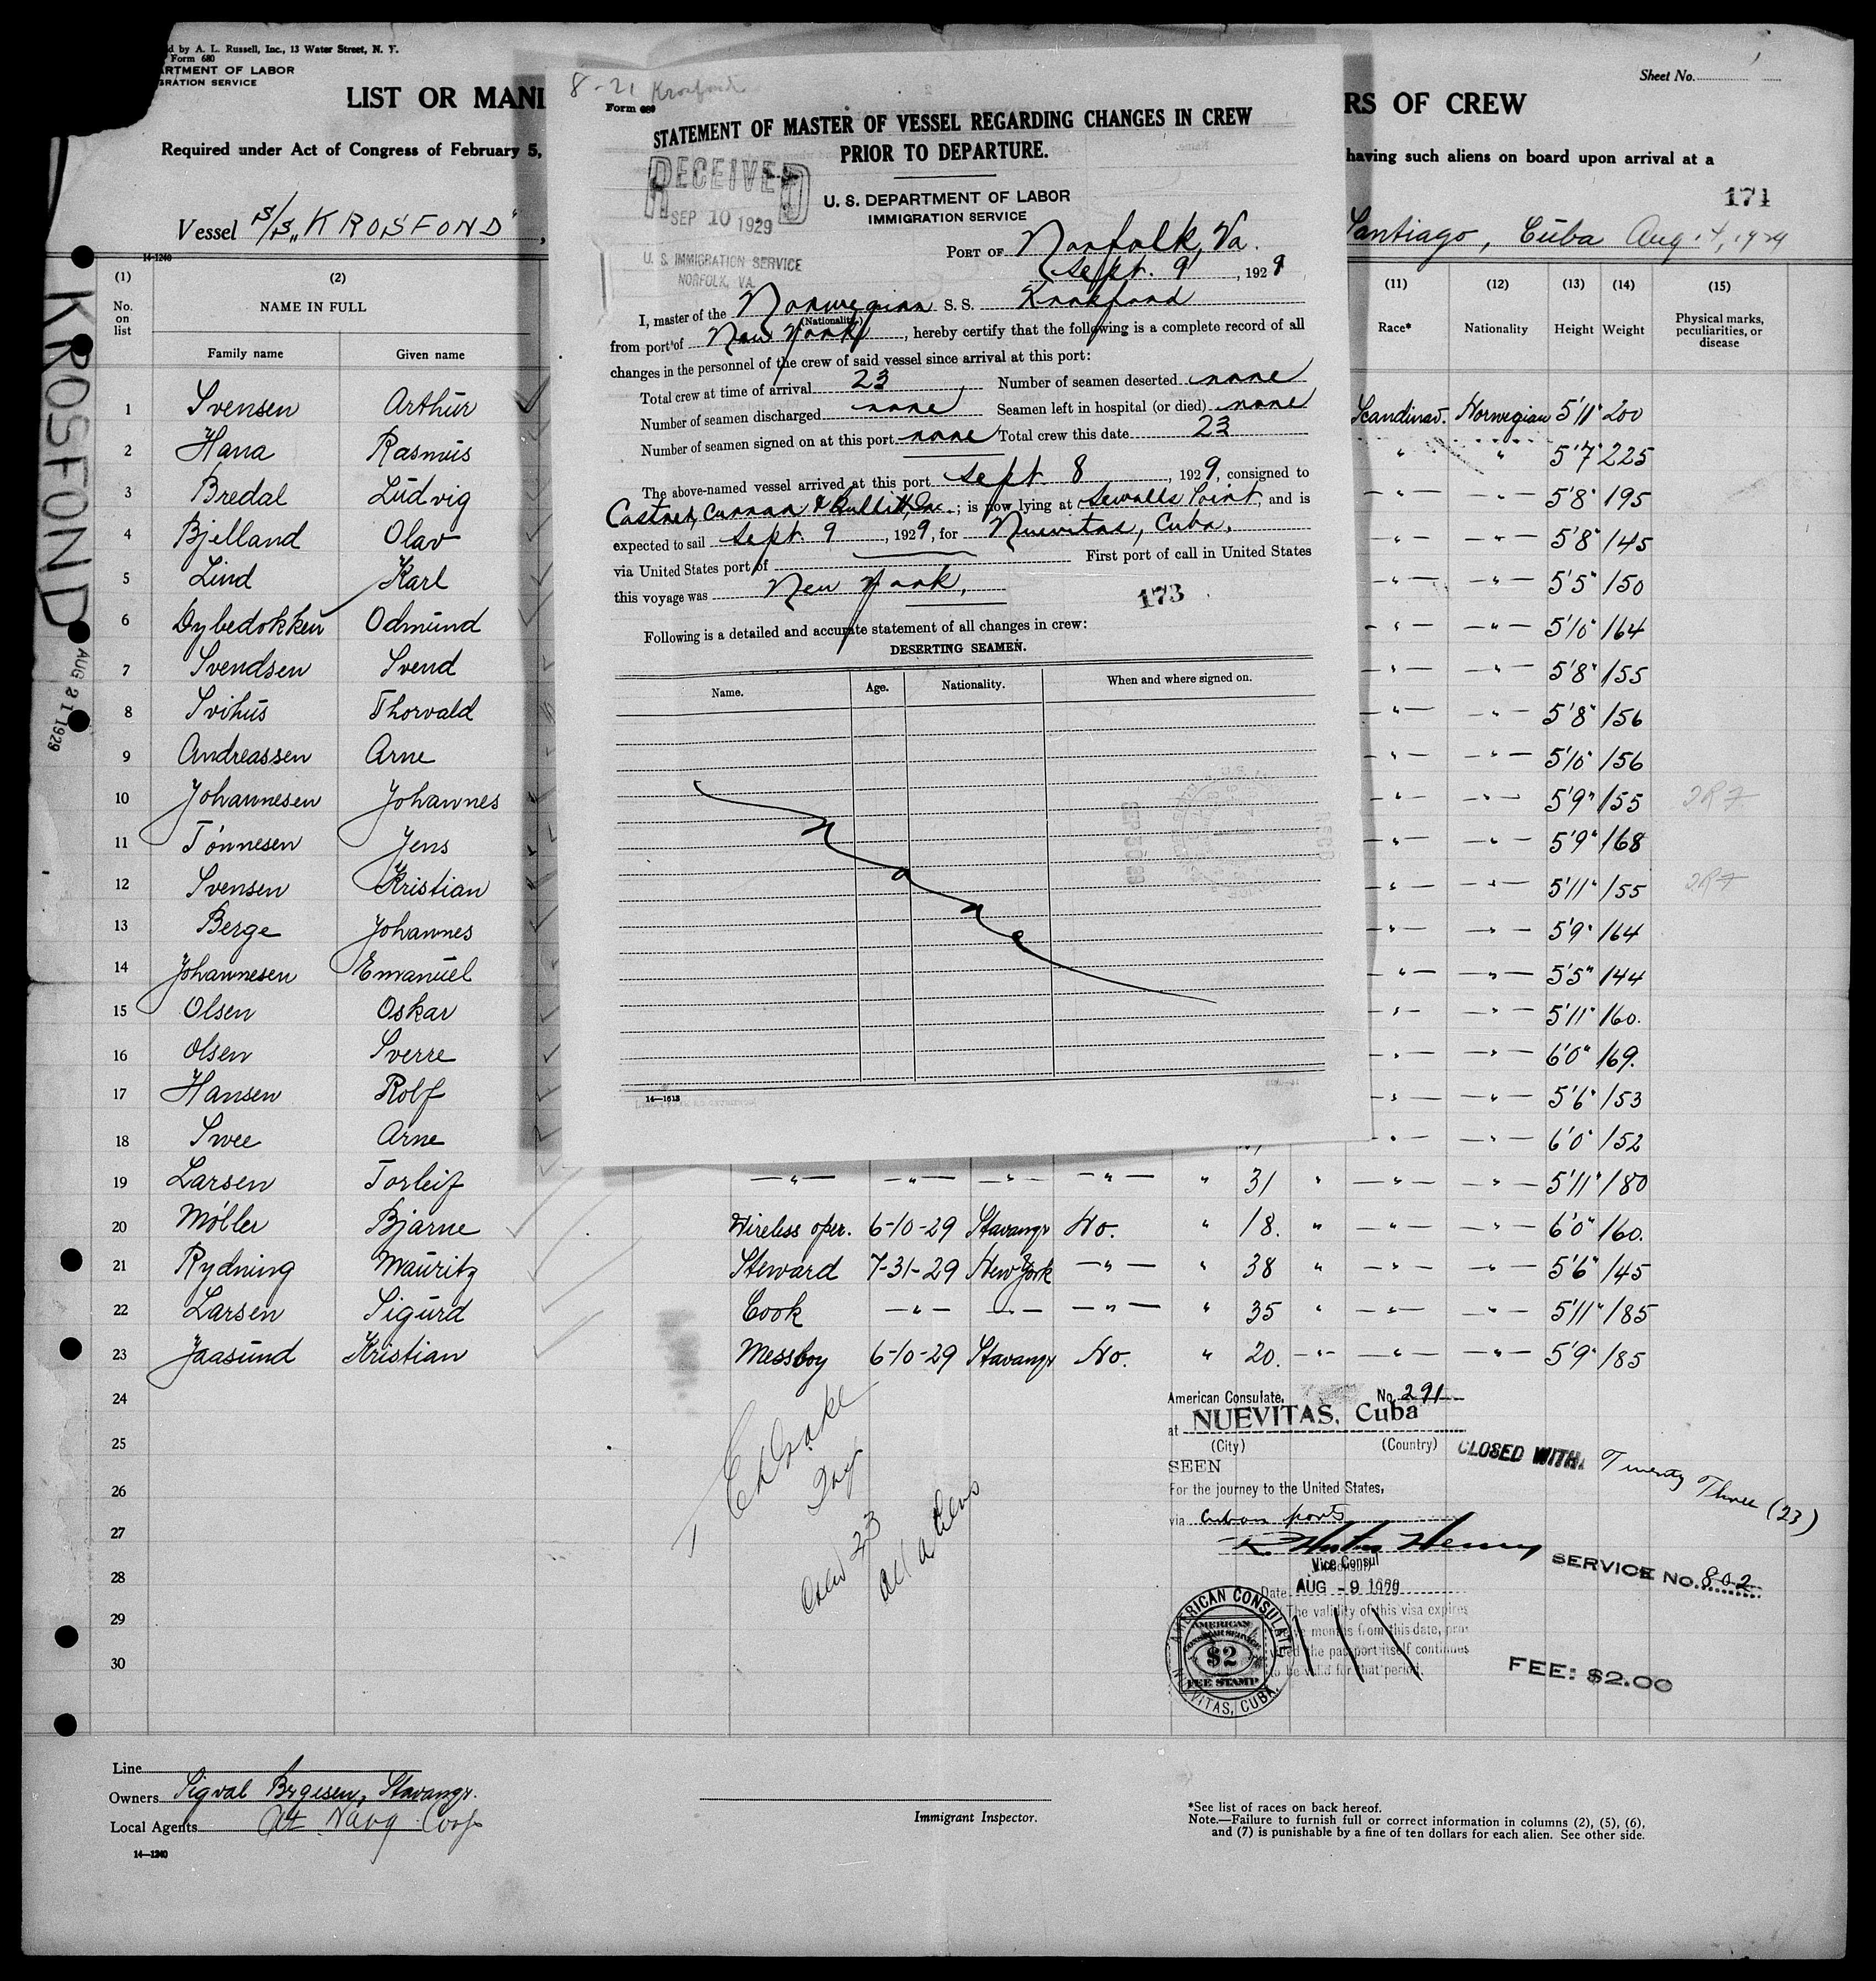 d by A. L. Russell, Inc., 13 Water Street, N. Y.
Form 680
ARTMENT OF LABOR
GRATION SERVICE
Sheet No. 1
LIST OR MANI
RS OF CREW
Required under Act of Congress of February 5,
having such aliens on board upon arrival at a
171
Vessel S/S „KROSFOND",
Santiago, Cuba Aug 14, 1929
KROSFOND
AUG 21 1929
8-21 Krosfond
Form 689
STATEMENT OF MASTER OF VESSEL REGARDING CHANGES IN CREW
PRIOR TO DEPARTURE.
RECEIVED
SEP 10 1929
U. S. IMMIGRATION SERVICE
NORFOLK, VA.
U. S. DEPARTMENT OF LABOR
IMMIGRATION SERVICE
PORT OF Norfolk, Va.
Sept. 9, 1929
I, master of the Norwegian S. S. Krosfond
(Nationality)
from port of New York, hereby certify that the following is a complete record of all
changes in the personnel of the crew of said vessel since arrival at this port:
Total crew at time of arrival 23, Number of seamen deserted none
Number of seamen discharged none Seamen left in hospital (or died) none
Number of seamen signed on at this port none Total crew this date 23
The above-named vessel arrived at this port Sept. 8, 1929, consigned to
Castner, Curran & Bullitt, Inc.; is now lying at Sewalls Point, and is
expected to sail Sept. 9, 1929, for Nuevitas, Cuba.
via United States port of First port of call in United States
this voyage was New York,
173
Following is a detailed and accurate statement of all changes in crew:
DESERTING SEAMEN.
Name. Age. Nationality. When and where signed on.
None
14—1613
14-1240
(1) (2) (11) (12) (13) (14) (15)
No. on list NAME IN FULL Race* Nationality Height Weight Physical marks, peculiarities, or disease
Family name Given name
1 Svensen Arthur Scandinav. Norwegian 5'11" 200
2 Hana Rasmus " " 5'7" 225
3 Bredal Ludvig " " 5'8" 195
4 Bjelland Olav " " 5'8" 145
5 Lind Karl " " 5'5" 150
6 Dybedokken Odmund " " 5'10" 164
7 Svendsen Svend " " 5'8" 155
8 Svihus Thorvald " " 5'8" 156
9 Andreassen Arne " " 5'10" 156
10 Johannesen Johannes " " 5'9" 155
11 Tönnesen Jens " " 5'9" 168
12 Svensen Kristian " " 5'11" 155
13 Berge Johannes " " 5'9" 164
14 Johannesen Emanuel " " 5'5" 144
15 Olsen Oskar " " 5'11" 160.
16 Olsen Sverre " " 6'0" 169.
17 Hansen Rolf " " 5'6" 153
18 Swee Arne " " 6'0" 152
19 Larsen Torleif " " " " " 31 " " " 5'11" 180
20 Möller Bjarne Wireless oper. 6-10-29 Stavangr No. " 18. " " " 6'0" 160.
21 Rydning Mauritz Steward 7-31-29 New York " " 38 " " " 5'6" 145
22 Larsen Sigurd Cook " " " " 35 " " " 5'11" 185
23 Jaasund Kristian Messboy 6-10-29 Stavangr No. " 20. " " " 5'9" 185
24
25
26
27
28
29
30
Crew 23
all aliens
American Consulate, No. 291
at NUEVITAS, Cuba
(City) (Country)
CLOSED WITH Twenty Three (23)
SEEN
For the journey to the United States,
via Cuban ports
Henry
Vice Consul
SERVICE NO. 802
Date AUG - 9 1929
The validity of this visa expires
months from this date, pro-
vided the passport itself continues
to be valid for that period.
AMERICAN CONSULATE
NUEVITAS, CUBA.
AMERICAN
CONSULAR SERVICE
$2
FEE STAMP
FEE: $2.00
Line
Owners Sigval Bergesen, Stavangr.
Local Agents
14—1240
Immigrant Inspector.
*See list of races on back hereof.
Note.—Failure to furnish full or correct information in columns (2), (5), (6),
and (7) is punishable by a fine of ten dollars for each alien. See other side.